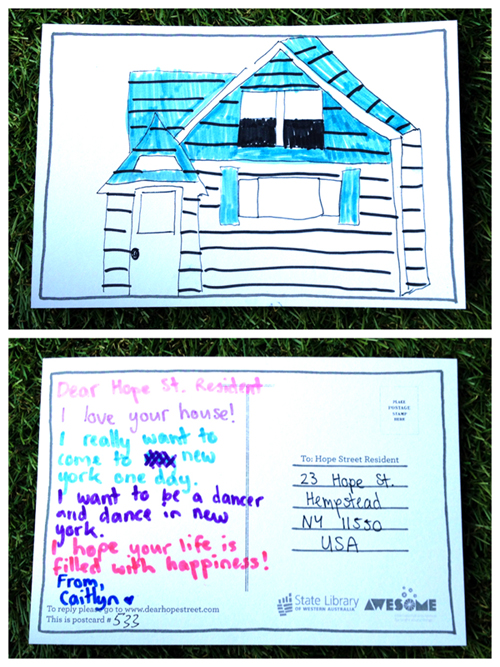 Dear Hope St. Resident
I love your house!
I really want to
come to new
york one day.
I want to be a dancer
and dance in new
york.
I hope your life is
filled with happiness!
From,
Caitlyn
To reply please go to www.dearhopestreet.com
This is postcard # 533
PLACE
POSTAGE
STAMP
HERE
To: Hope Street Resident
23 Hope St.
Hempstead
NY 11550
USA
State Library
OF WESTERN AUSTRALIA
AWESOME